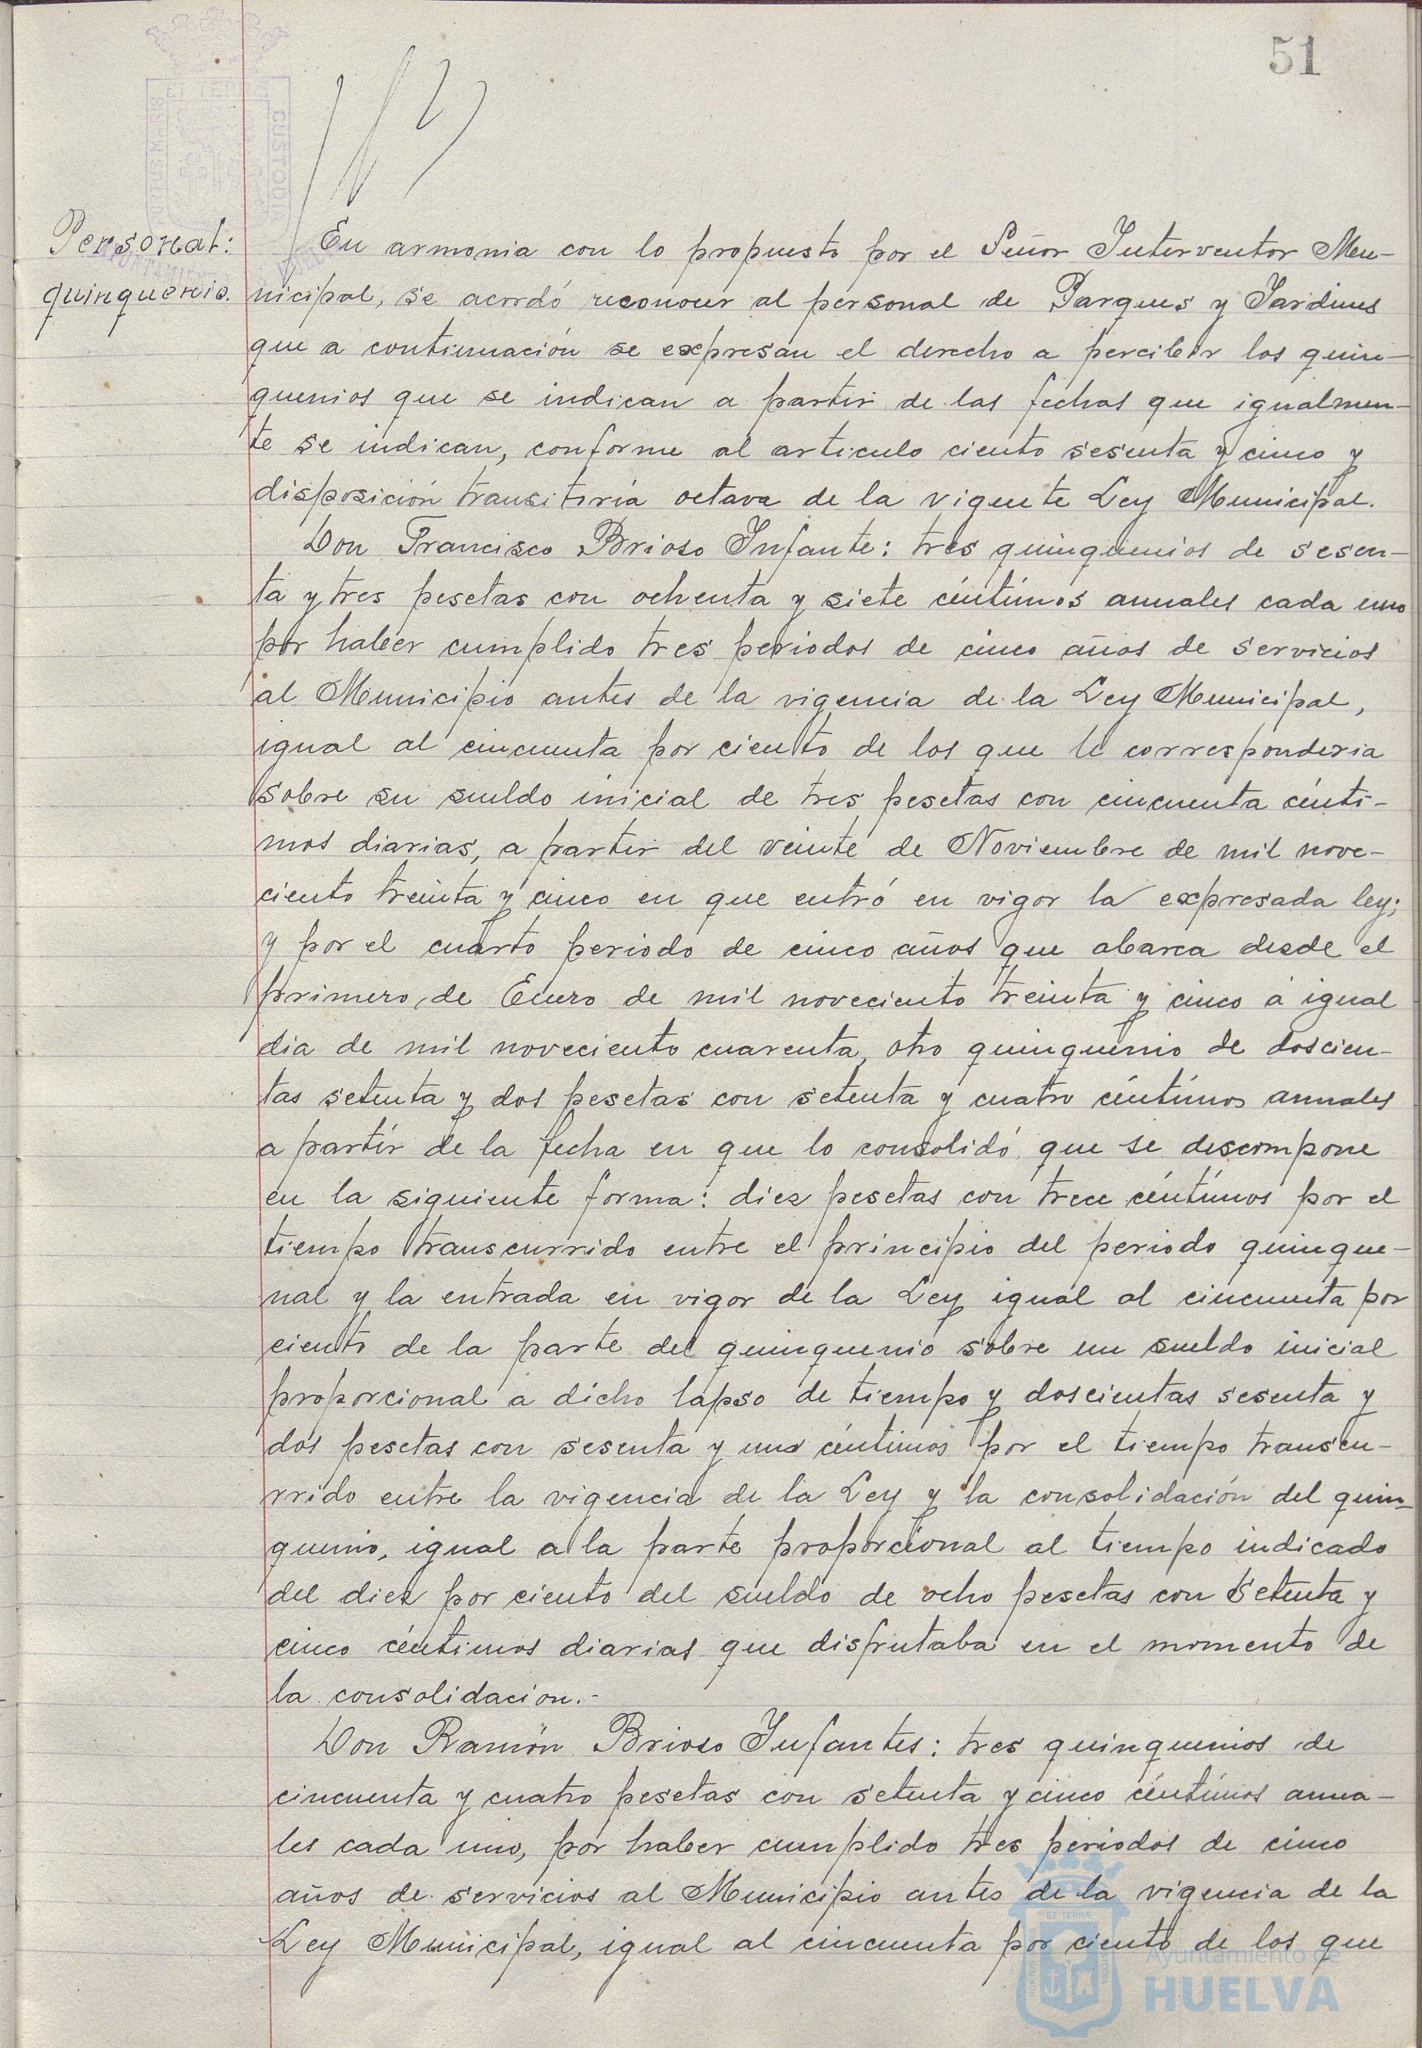 51
Personal:
quinquenio.
En armonia con lo propuesto por el Señor Interventor Mu-
nicipal, se acordó reconocer al personal de Parques y Jardines
que a continuación se expresan el derecho a percibir los quin-
quenios que se indican a partir de las fechas que igualmen-
te se indican, conforme al articulo ciento sesenta y cinco y
disposición transitoria octava de la vigente Ley Municipal.
Don Francisco Brioso Infante: tres quinquenios de sesen-
ta y tres pesetas con ochenta y siete céntimos anuales cada uno
por haber cumplido tres periodos de cinco años de servicios
al Municipio antes de la vigencia de la Ley Municipal,
igual al cincuenta por ciento de los que le corresponderia
sobre su sueldo inicial de tres pesetas con cincuenta cénti-
mos diarias, a partir del veinte de Noviembre de mil nove-
ciento treinta y cinco en que entró en vigor la expresada ley;
y por el cuarto periodo de cinco años que abarca desde el
primero, de Enero de mil noveciento treinta y cinco a igual
dia de mil noveciento cuarenta, otro quinquenio de doscien-
tas setenta y dos pesetas con setenta y cuatro céntimos anuales
a partir de la fecha en que lo consolidó que se descompone
en la siguiente forma: diez pesetas con trece céntimos por el
tiempo transcurrido entre el principio del periodo quinque-
nal y la entrada en vigor de la Ley igual al cincuenta por
ciento de la parte del quinquenio sobre un sueldo inicial
proporcional a dicho lapso de tiempo y doscientas sesenta y
dos pesetas con sesenta y uno céntimos por el tiempo transcu-
rrido entre la vigencia de la Ley y la consolidación del quin-
quenio, igual a la parte proporcional al tiempo indicado
del diez por ciento del sueldo de ocho pesetas con setenta y
cinco céntimos diarias que disfrutaba en el momento de
la consolidacion.-
Don Ramón Brioso Infantes: tres quinquenios de
cincuenta y cuatro pesetas con setenta y cinco céntimos anua-
les cada uno, por haber cumplido tres periodos de cinco
años de servicios al Municipio antes de la vigencia de la
Ley Municipal, igual al cincuenta por ciento de los que
Ayuntamiento de
HUELVA